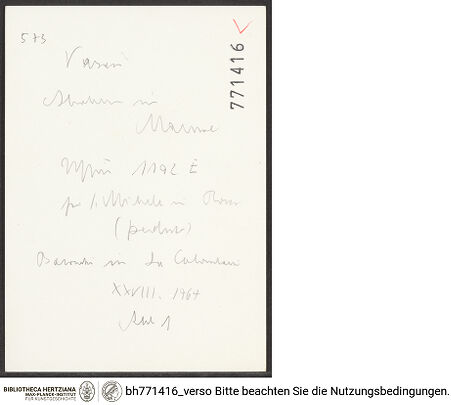 573
771416
Vasari
Abraham in
Mamre
Uffizi 1192 E
für S. Michele in Bosco
(perduto)
Barocchi in La Colombaria
XXVIII. 1964
Abb 1
BIBLIOTHECA HERTZIANA
MAX-PLANCK-INSTITUT
FÜR KUNSTGESCHICHTE
bh771416_verso Bitte beachten Sie die Nutzungsbedingungen.